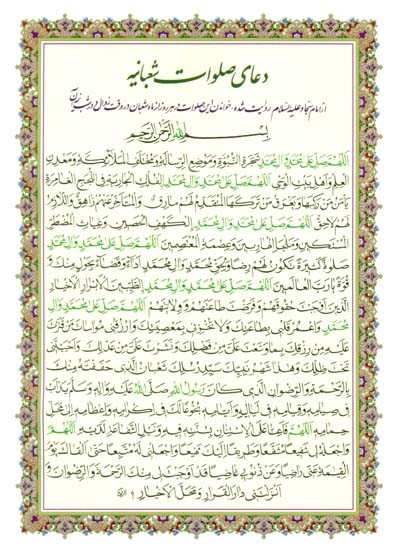 دعای صلوات شعبانیه
از امام سجاد علیه السلام روایت شده، خواندن این صلوات در هر روز از ماه شعبان در وقت زوال و در شب نیمه آن
بسم الله الرحمن الرحیم
اَللّهُمَّ صَلِّ عَلى مُحَمَّدٍ وَآلِ مُحَمَّدٍ شَجَرَةِ النُّبُوَّةِ وَمَوْضِعِ الرِّسالَةِ وَمُخْتَلَفِ الْمَلآئِكَةِ وَمَعْدِنِ
الْعِلْمِ وَاَهْلِ بَيْتِ الْوَحْىِ اَللّهُمَّ صَلِّ عَلى مُحَمَّدٍ وَآلِ مُحَمَّدٍ الْفُلْكِ الْجارِيَةِ فِى اللُّجَجِ الْغامِرَةِ
يَاْمَنُ مَنْ رَكِبَها وَيَغْرَقُ مَنْ تَرَكَهَا الْمُتَقَدِّمُ لَهُمْ مارِقٌ وَالْمُتَاَخِّرُ عَنْهُمْ زاهِقٌ وَاللاّزِمُ
لَهُمْ لاحِقٌ اَللّهُمَّ صَلِّ عَلى مُحَمَّدٍ وَآلِ مُحَمَّدٍ الْكَهْفِ الْحَصينِ وَغِياثِ الْمُضْطَرِّ
الْمُسْتَكينِ وَمَلْجَاِ الْهارِبينَ وَعِصْمَةِ الْمُعْتَصِمينَ اَللّهُمَّ صَلِّ عَلى مُحَمَّدٍ وَآلِ مُحَمَّدٍ
صَلوةً كَثيرَةً تَكُونُ لَهُمْ رِضاً وَلِحَقِّ مُحَمَّدٍ وَآلِ مُحَمَّدٍ اَدآءً وَقَضآءً بِحَوْلٍ مِنْكَ وَ
قُوَّةٍ يا رَبَّ الْعالَمينَ اَللّهُمَّ صَلِّ عَلى مُحَمَّدٍ وَآلِ مُحَمَّدٍ الطَّيِّبينَ الاْبْرارِ الاْخْيارِ
الَّذينَ اَوْجَبْتَ حُقُوقَهُمْ وَفَرَضْتَ طاعَتَهُمْ وَوِلايَتَهُمْ اَللّهُمَّ صَلِّ عَلى مُحَمَّدٍ وَآلِ
مُحَمَّدٍ وَاعْمُرْ قَلْبى بِطاعَتِكَ وَلا تُخْزِنى بِمَعْصِيَتِكَ وَارْزُقْنى مُواساةَ مَنْ قَتَّرْتَ
عَلَيْهِ مِنْ رِزْقِكَ بِما وَسَّعْتَ عَلَىَّ مِنْ فَضْلِكَ وَنَشَرْتَ عَلَىَّ مِنْ عَدْلِكَ وَاَحْيَيْتَنى
تَحْتَ ظِلِّكَ وَهذا شَهْرُ نَبِيِّكَ سَيِّدِ رُسُلِكَ شَعْبانُ الَّذى حَفَفْتَهُ مِنْكَ
بِالرَّحْمَةِ وَالرِّضْوانِ الَّذى كانَ رَسُولُ اللهِ صَلَّى اللهُ عَلَيْهِ وَآلِهِ وَسَلَّمَ يَدْاَبُ
فى صِيامِهِ وَقِيامِهِ فى لَياليهِ وَاَيّامِهِ بُخُوعاً لَكَ فى اِكْرامِهِ وَاِعْظامِهِ اِلى مَحَلِّ
حِمامِهِ اَللّهُمَّ فَاَعِنّا عَلَى الاِسْتِنانِ بِسُنَّتِهِ فيهِ وَنَيْلِ الشَّفاعَةِ لَدَيْهِ اَللّهُمَّ وَ
اجْعَلْهُ لى شَفيعاً مُشَفَّعاً وَطَريقاً اِلَيْكَ مَهيَعاً وَاجْعَلْنى لَهُ مُتَّبِعاً حَتّى اَلْقاكَ يَوْمَ
الْقِيمَةِ عَنّى راضِياً وَعَنْ ذُنُوبى غاضِياً قَدْ اَوْجَبْتَ لى مِنْكَ الرَّحْمَةَ وَالرِّضْوانَ وَ
اَنْزَلْتَنى دارَ الْقَرارِ وَمَحَلَّ الاْخْيارِ